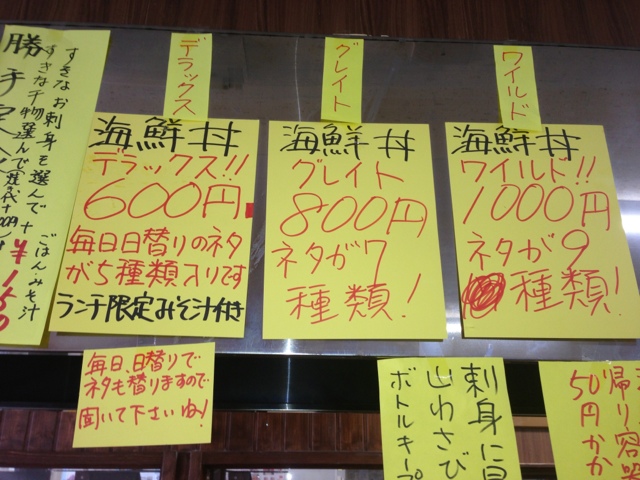 すきなお刺身を選んで
すきな干物選んで
ごはんみそ汁
デラックス
海鮮丼
デラックス!!
600円
毎日日替りのネタ
が5種類入りです
ランチ限定みそ汁付き
グレイト
海鮮丼
グレイト
800円
ネタが7
種類!
ワイルド
海鮮丼
ワイルド!!
1000円
ネタが9
種類!
毎日、日替りで
ネタも替りますので
聞いて下さいね!
刺身に
山わさび
ボトルキープ
帰り容器
50円かか